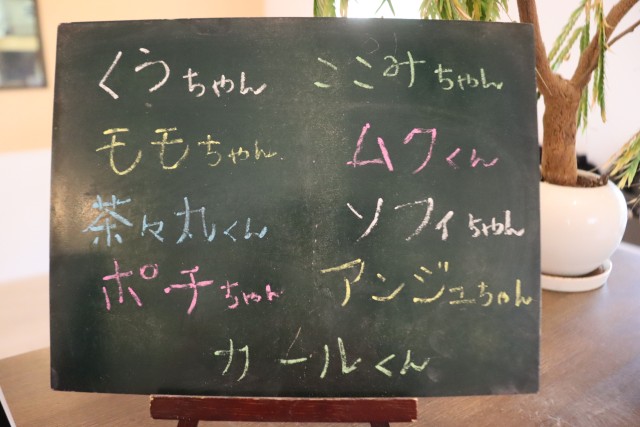 くうちゃん ここみちゃん
モモちゃん ムクくん
茶々丸くん ソフィちゃん
ポチちゃん アンジェちゃん
カールくん